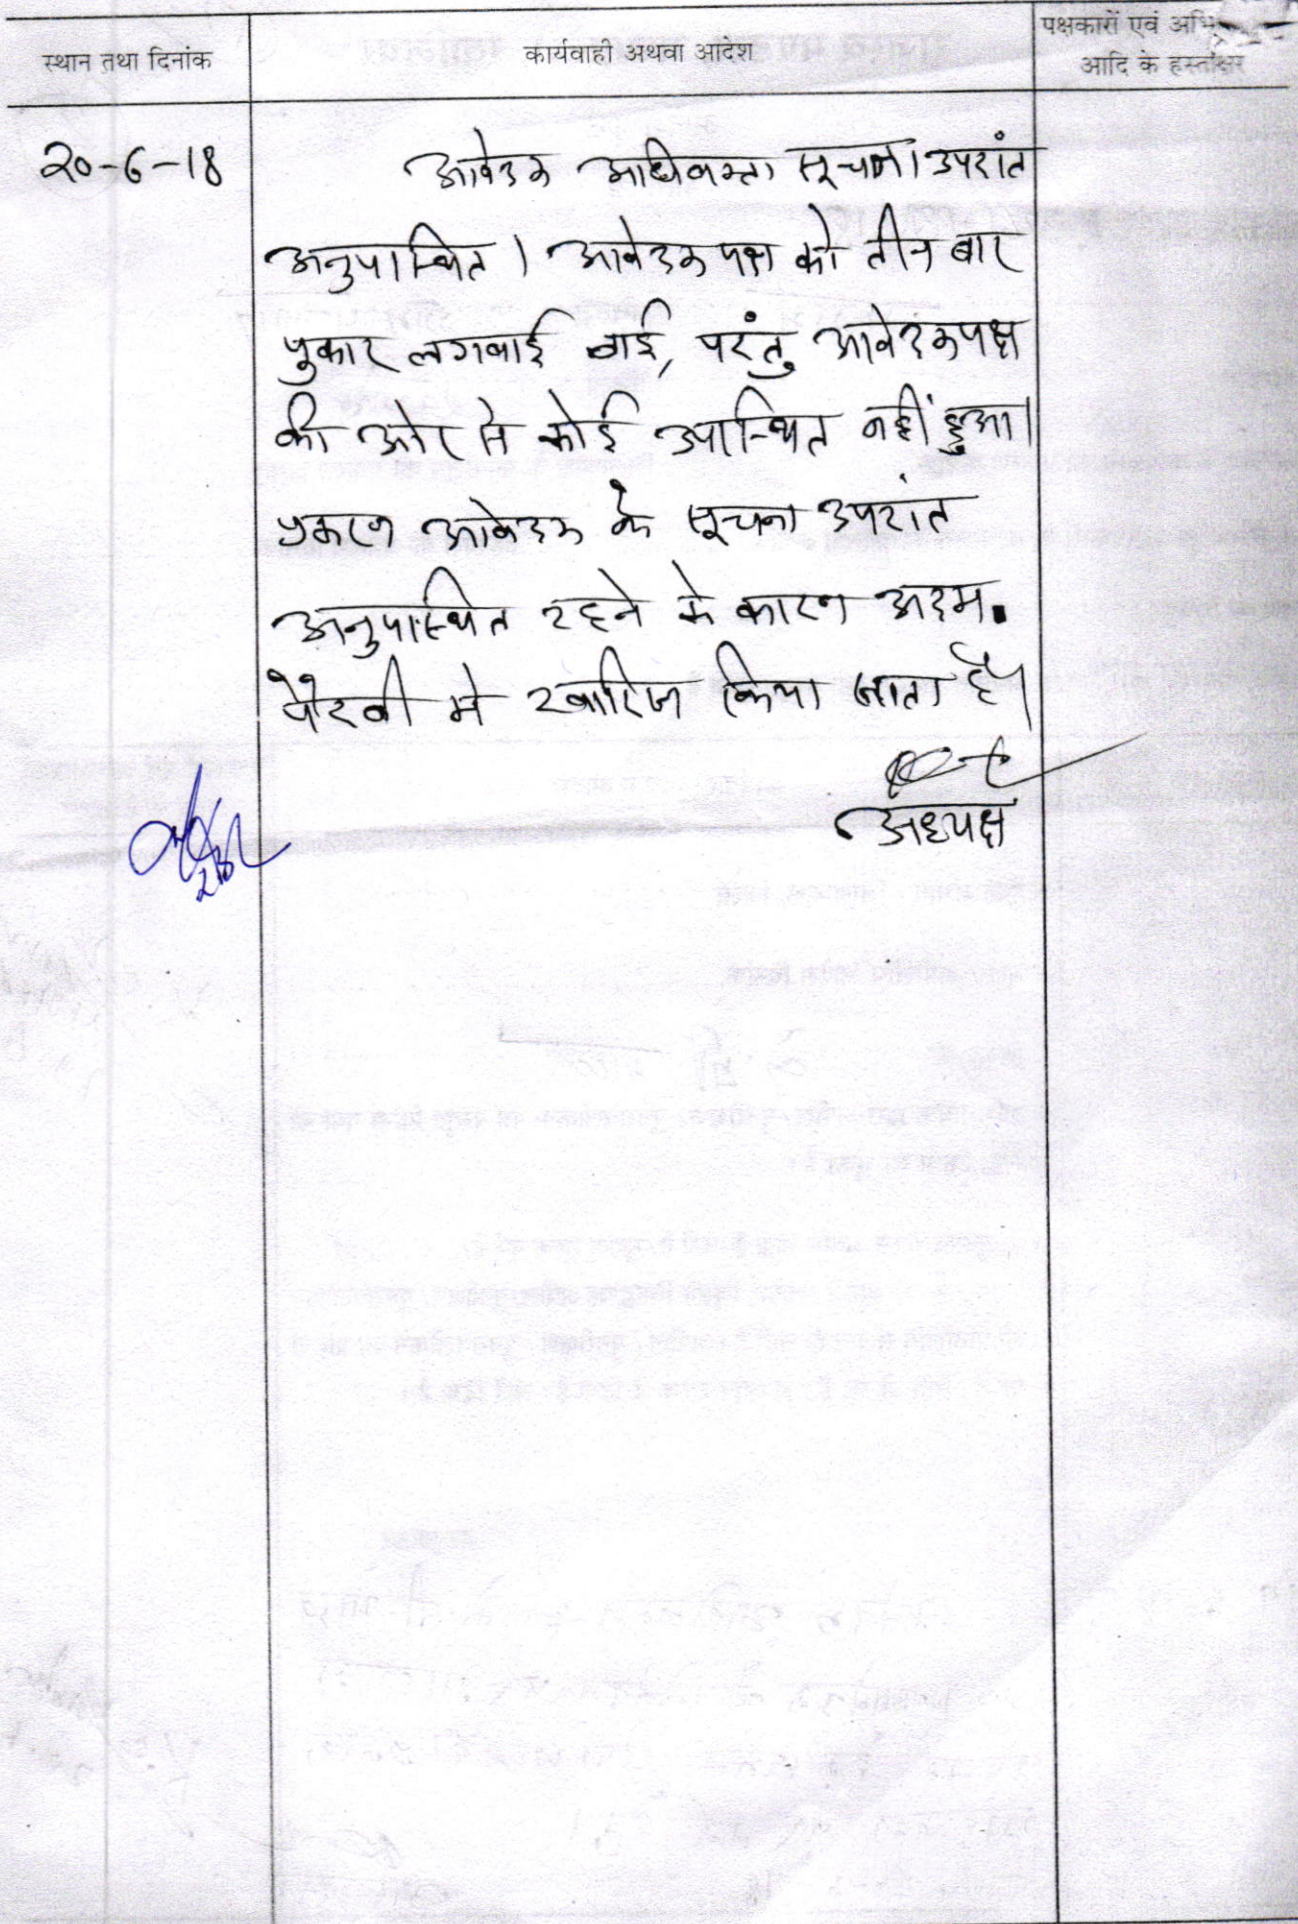 स्थान तथा दिनांक
कार्यवाही अथवा आदेश
पक्षकारों एवं
आदि के हस्ताक्षर
20-6-18
आवेदक अधिवक्ता सूचना उपरांत
अनुपस्थित। आवेदक पक्ष को तीन बार
पुकार लगवाई गई, परंतु आवेदकपक्ष
की ओर से कोई उपस्थित नहीं हुआ।
प्रकरण आवेदक के सूचना उपरांत
अनुपस्थित रहने के कारण अदम
पैरवी में खारिज किया जाता है।
अध्यक्ष